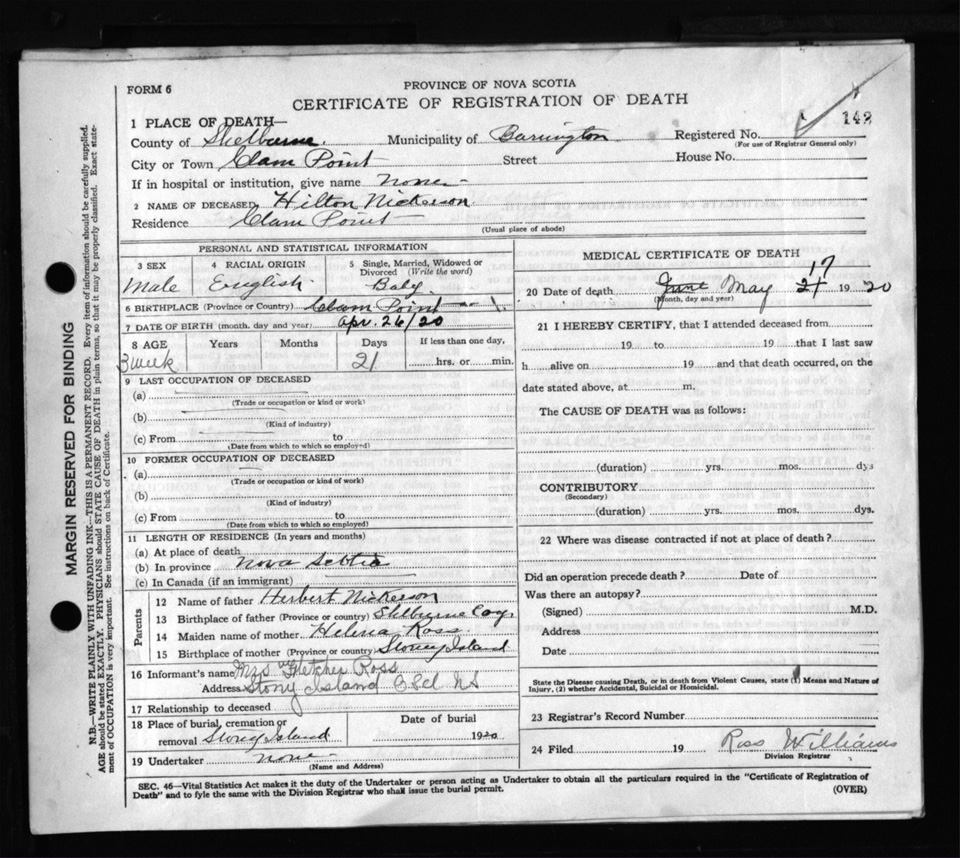 FORM 6
PROVINCE OF NOVA SCOTIA
CERTIFICATE OF REGISTRATION OF DEATH
1 PLACE OF DEATH—
County of Shelburne. Municipality of Barrington Registered No. 142
(For use of Registrar General only)
City or Town Clam Point Street House No.
If in hospital or institution, give name none
2 NAME OF DECEASED Hilton Nickerson
Residence Clam Point
(Usual place of abode)
PERSONAL AND STATISTICAL INFORMATION
3 SEX Male
4 RACIAL ORIGIN English
5 Single, Married, Widowed or Divorced (Write the word) Baby
6 BIRTHPLACE (Province or Country) Clam Point
7 DATE OF BIRTH (month, day and year) Apr. 26/20
8 AGE Years Months Days If less than one day,
3 week 21 hrs. or min.
9 LAST OCCUPATION OF DECEASED
(a)
(Trade or occupation or kind or work)
(b)
(Kind of industry)
(c) From to
(Date from which to which so employed)
10 FORMER OCCUPATION OF DECEASED
(a)
(Trade or occupation or kind of work)
(b)
(Kind of industry)
(c) From to
(Date from which to which so employed)
11 LENGTH OF RESIDENCE (In years and months)
(a) At place of death
(b) In province Nova Scotia
(c) In Canada (if an immigrant)
Parents
12 Name of father Herbert Nickerson
13 Birthplace of father (Province or country) Shelburne Co
14 Maiden name of mother Helena Ross
15 Birthplace of mother (Province or country) Stoney Island
16 Informant's name Mrs Fletcher Ross
Address Stony Island C Scl NS
17 Relationship to deceased
18 Place of burial, cremation or removal Stony Island Date of burial 1920
19 Undertaker none
(Name and Address)
MEDICAL CERTIFICATE OF DEATH
20 Date of death June May 17 21 1920
(Month, day and year)
21 I HEREBY CERTIFY, that I attended deceased from
19 to 19 that I last saw
h alive on 19 and that death occurred, on the
date stated above, at m.
The CAUSE OF DEATH was as follows:
(duration) yrs. mos. dys
CONTRIBUTORY
(Secondary)
(duration) yrs. mos. dys.
22 Where was disease contracted if not at place of death?
Did an operation precede death? Date of
Was there an autopsy?
(Signed) M.D.
Address
Date
State the Disease causing Death, or in death from Violent Causes, state (1) Means and Nature of
Injury, (2) whether Accidental, Suicidal or Homicidal.
23 Registrar's Record Number
24 Filed 19 Ross Williams
Division Registrar
SEC. 46—Vital Statistics Act makes it the duty of the Undertaker or person acting as Undertaker to obtain all the particulars required in the "Certificate of Registration of
Death" and to fyle the same with the Division Registrar who shall issue the burial permit.
(OVER)
MARGIN RESERVED FOR BINDING
N.B.—WRITE PLAINLY, WITH UNFADING INK—THIS IS A PERMANENT RECORD. Every item of information should be carefully supplied.
AGE should be stated EXACTLY. PHYSICIANS should STATE CAUSE OF DEATH in plain terms, so that it may be properly classified. Exact state-
ment of OCCUPATION is very important. See instructions on back of Certificate.